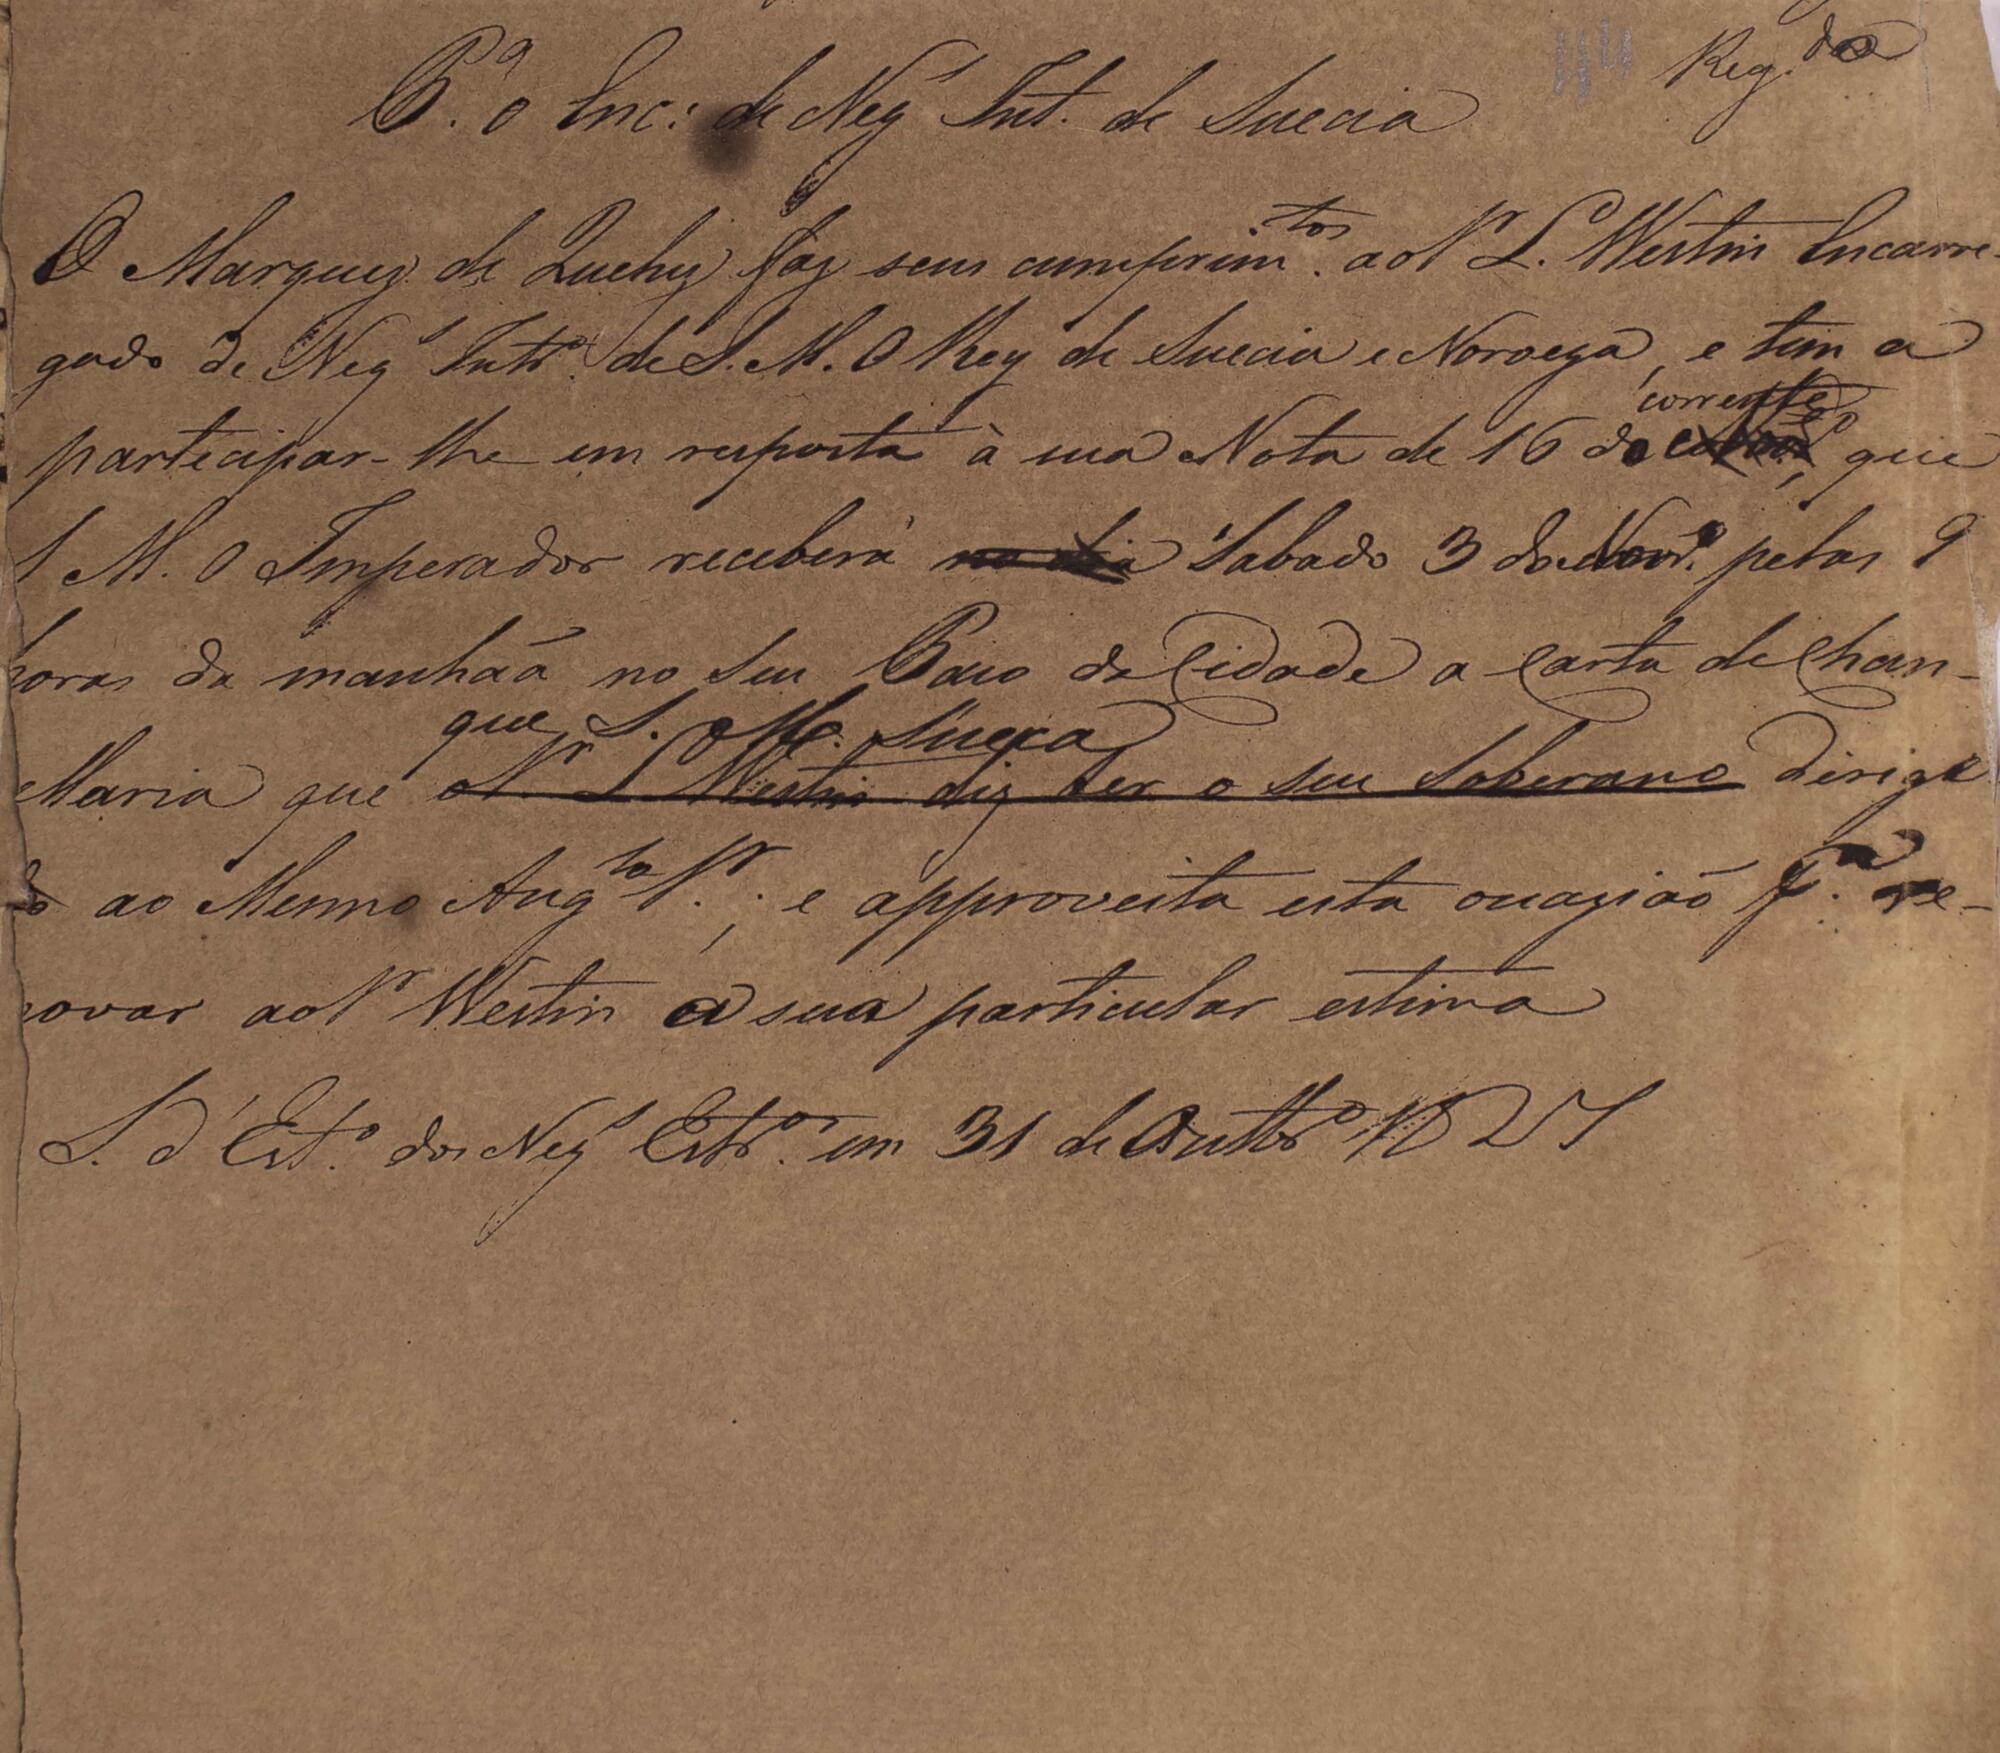 Reg.da
P.a o Enc: de Neg.s Int. de Suecia
O Marquez de Queluz faz seus cumprim.tos ao Sr. L. Westin Encarre-
gado de Neg.s Intr.os de S. M. O Rey de Suecia e Noroega, e tem a
participar-lhe em resposta à sua Nota de 16 do corrente, que
S M. O Imperador receberá no dia Sabado 3 de Novr.o pelas 9
horas da manhaã no seu Paço da Cidade a Carta de Chan-
que S. M. Sueca
cellaria que o Sr. L Westin diz ter o seu Soberano dirigi
do ao Mesmo Aug.to Sr.; e approveita esta occazião p.a re-
novar ao Sr Westin a sua particular estima
S. d'Est.o dos Neg.s Estr.os em 31 de Outbr.o 1827